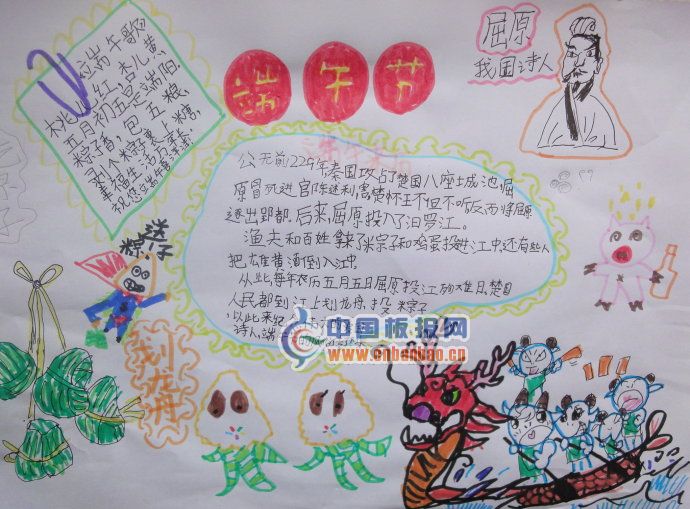 端午节
端午歌
桃儿红,杏儿黄,
五月初五是端阳。
粽子香,包五粮,
剥个粽子裹上糖,
幸福生活万年长,
屈原
我国诗人
公元前229年秦国攻占了楚国八座城池屈
原冒死进宫陈述利害楚怀王不但不听反而将屈原
逐出郢都.后来,屈原投入了汨罗江。
渔夫和百姓拿了米粽子和鸡蛋投进江中还有些人
把雄黄酒倒入江中.
从此,每年农历五月五日屈原投江殉难日,楚国
人民都到江上划龙舟,投粽子
以此来纪
诗人,端
粽迷
划龙舟
中国板报网
www.cnbanbao.cn